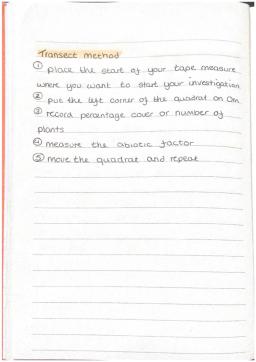 Transect method
① place the start of your tape measure
where you want to start your investigation
② put the left corner of the quadrat on 0m
③ record percentage cover or number of
plants
④ measure the abiotic factor
⑤ move the quadrat and repeat